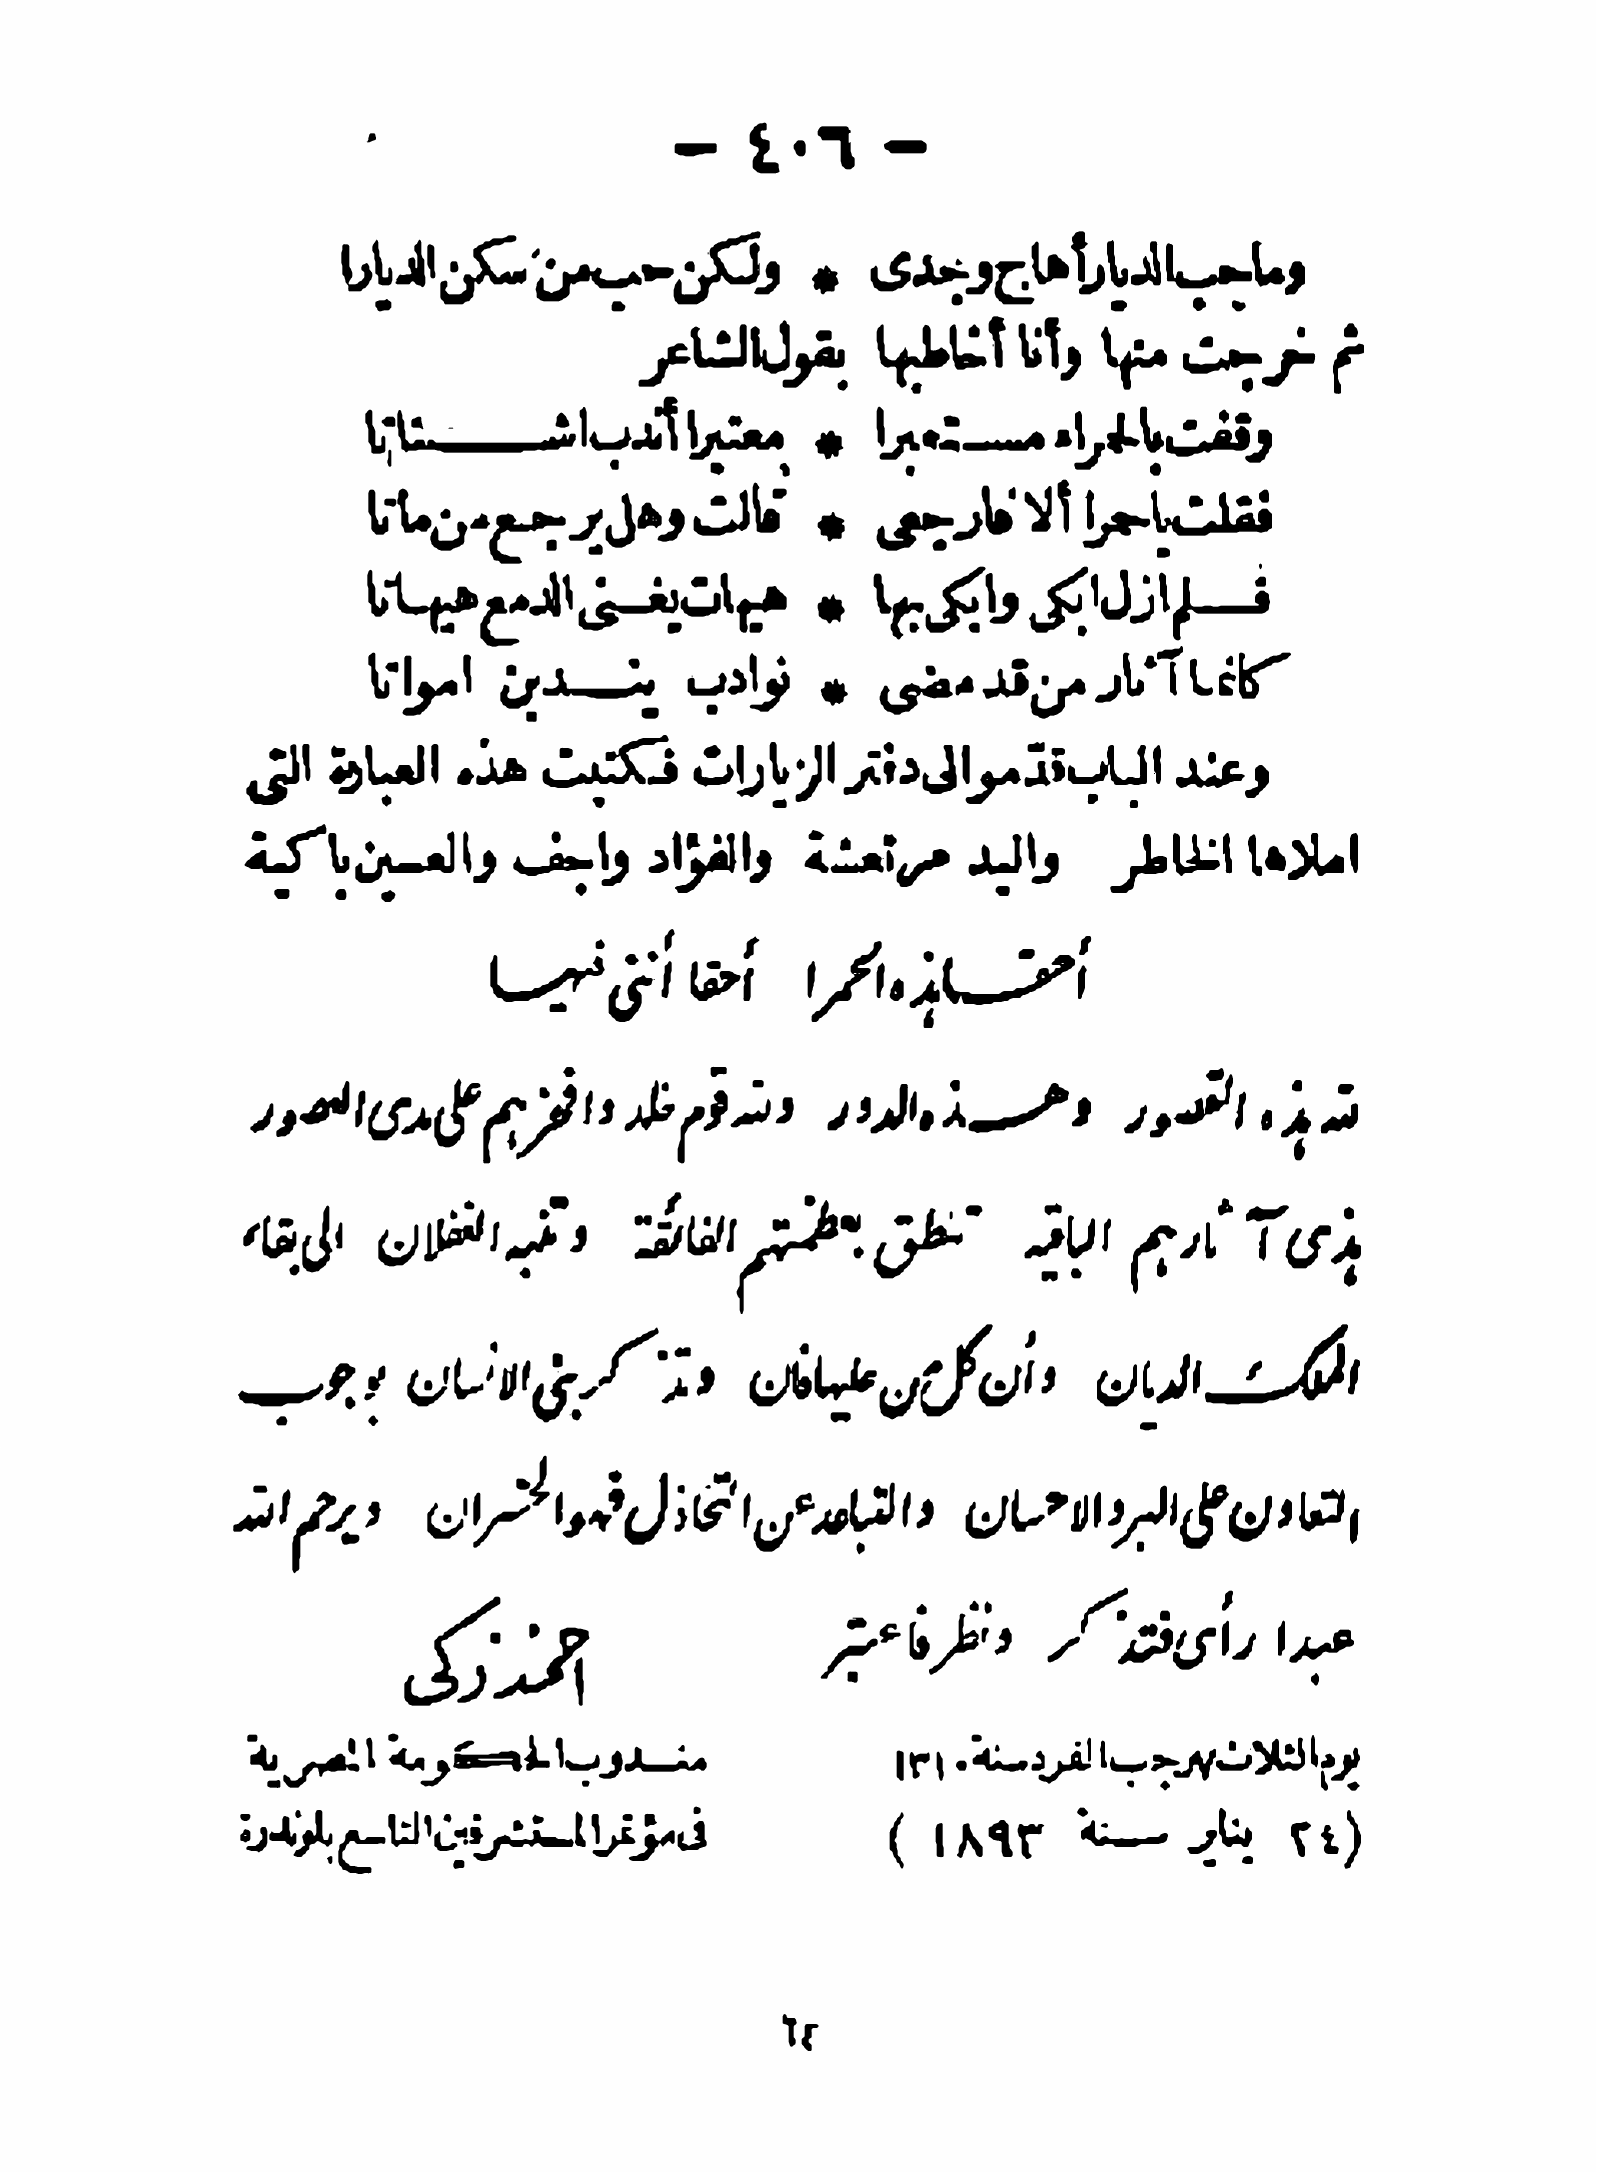 — ٤٠٦ —
وما حب الديار أهاج وجدى * ولكن حب من سكن الديارا
ثم خرجت منها وأنا أخاطبها بقول الشاعر
وقفت بالحمراء مستعبرا * معتبرا أندب اشتاتا
فقلت يا حمرا ألا فارجعى * قالت وهل يرجع من ماتا
فلم ازل ابكى وابكى بها * هيهات يغنى الدمع هيهاتا
كانما آثار من قد مضى * نوادب يندبن امواتا
وعند الباب قدّموا لى دفتر الزيارات فكتبت هذه العبارة التى
املاها الخاطر واليد مرتعشة والفؤاد واجف والعين باكية
أحقا هذه الحمرا أحقا أننى فيها
لله هذه القصور وهذه الدور ولله قوم خلد وافخرهم على مدى العصور
هذى آثارهم الباقيه تنطق بعظمتهم الفائقة وتنبه الغفلان الى بقاء
الملك الديان وأن كل من عليها فان وتذكر بنى الانسان بوجوب
التعاون على البر والاحسان والتباعد عن التخاذل فهو الخسران ويرحم الله
عبدا رأى فتذكر ونظر فاعتبر
احمد زكى
يوم الثلاث رجب الفرد سنة ١٣١٠
مندوب الحكومة المصرية
(٢٤ يناير سنة ١٨٩٣)
فى مؤتمر المستشرقين التاسع بلوندرة